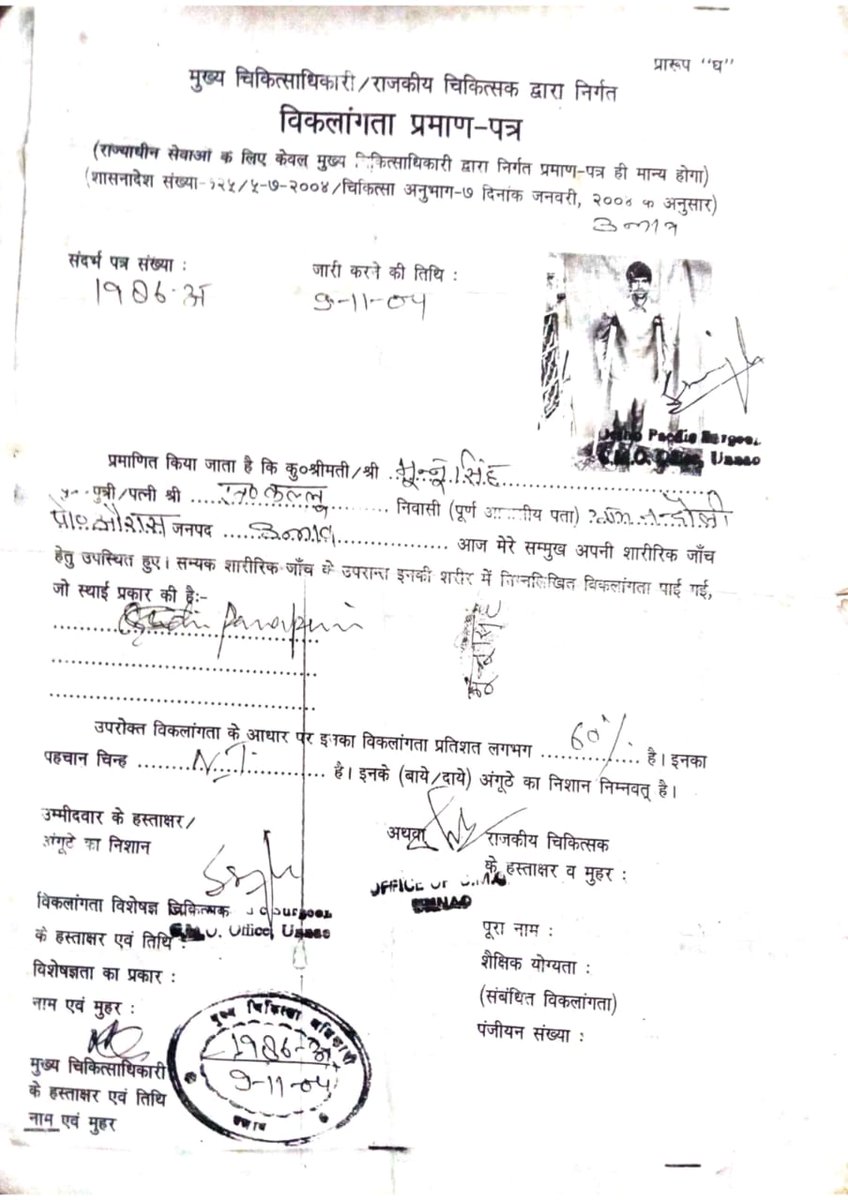 प्रारूप "घ"
मुख्य चिकित्साधिकारी/राजकीय चिकित्सक द्वारा निर्गत
विकलांगता प्रमाण-पत्र
(राज्याधीन सेवाओं के लिए केवल मुख्य चिकित्साधिकारी द्वारा निर्गत प्रमाण-पत्र ही मान्य होगा)
(शासनादेश संख्या-१२५/५-७-२००४/चिकित्सा अनुभाग-७ दिनांक जनवरी, २००४ के अनुसार)
उन्नाव
संदर्भ पत्र संख्या : जारी करने की तिथि :
1986-अ 9-11-04
Surgeon
C.M.O. Office, Unnao
प्रमाणित किया जाता है कि कु०श्रीमती/श्री ..मुन्नू सिंह..
पुत्री/पत्नी श्री ..स्व० कल्लू.. निवासी (पूर्ण पता)
पो० औरास जनपद ..उन्नाव.. आज मेरे सम्मुख अपनी शारीरिक जाँच
हेतु उपस्थित हुए। सम्यक शारीरिक जाँच के उपरान्त इनकी शरीर में निम्नलिखित विकलांगता पाई गई,
जो स्थाई प्रकार की है:-
उपरोक्त विकलांगता के आधार पर इनका विकलांगता प्रतिशत लगभग ..60%.. है। इनका
पहचान चिन्ह ..N.I... है। इनके (बाये/दाये) अंगूठे का निशान निम्नवत् है।
उम्मीदवार के हस्ताक्षर/
अंगूटे का निशान
अथवा राजकीय चिकित्सक
के हस्ताक्षर व मुहर :
OFFICE OF C.M.O.
UNNAO
विकलांगता विशेषज्ञ चिकित्सक
Surgeon
के हस्ताक्षर एवं तिथि :
C.M.O. Office, Unnao
विशेषज्ञता का प्रकार :
नाम एवं मुहर :
पूरा नाम :
शैक्षिक योग्यता :
(संबंधित विकलांगता)
पंजीयन संख्या :
मुख्य चिकित्साधिकारी
के हस्ताक्षर एवं तिथि
नाम एवं मुहर
मुख्य चिकित्सा अधिकारी
1986-अ
9-11-04
उन्नाव